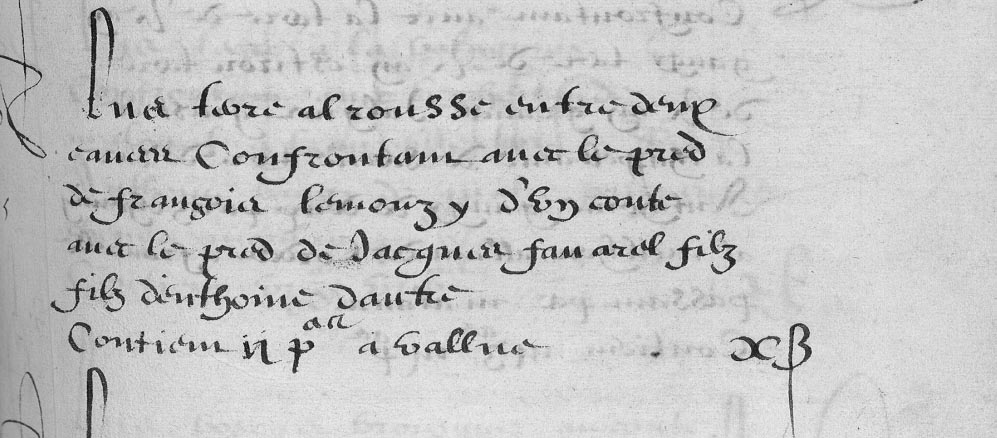 Une terre al rousse entre deux
eaues Confrontant avec le pred
de françois lemouzy d'un couté
avec le pred de Jacques favarel filz
filz d'enthoine dautre
Contient ii p a vallue x ß